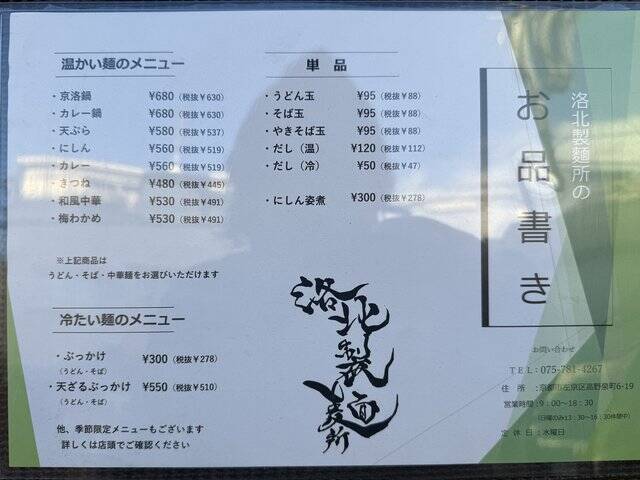 温かい麺のメニュー
・京洛鍋 ¥680(税抜￥630)
・カレー鍋 ¥680(税抜￥630)
・天ぷら ¥580(税抜￥537)
・にしん ¥560(税抜￥519)
・カレー ¥560(税抜￥519)
・きつね ¥480(税抜￥445)
・和風中華 ¥530(税抜￥491)
・梅わかめ ¥530(税抜￥491)
※上記商品は
うどん・そば・中華麺をお選びいただけます
冷たい麺のメニュー
・ぶっかけ ¥300(税抜￥278)
（うどん・そば）
・天ざるぶっかけ ¥550(税抜￥510)
（うどん・そば）
他、季節限定メニューもございます
詳しくは店頭でご確認ください
単品
・うどん玉 ¥95(税抜￥88)
・そば玉 ¥95(税抜￥88)
・やきそば玉 ¥95(税抜￥88)
・だし（温） ¥120(税抜￥112)
・だし（冷） ¥50(税抜￥47)
・にしん姿煮 ¥300(税抜￥278)
洛北製麺所
洛北製麺所の
お品書き
お問い合わせ
TEL:075-781-4267
住 所:京都市左京区高野泉町6-19
営業時間:9：00～18：30
（日曜のみ13：30～16：30休憩中）
定休日:水曜日